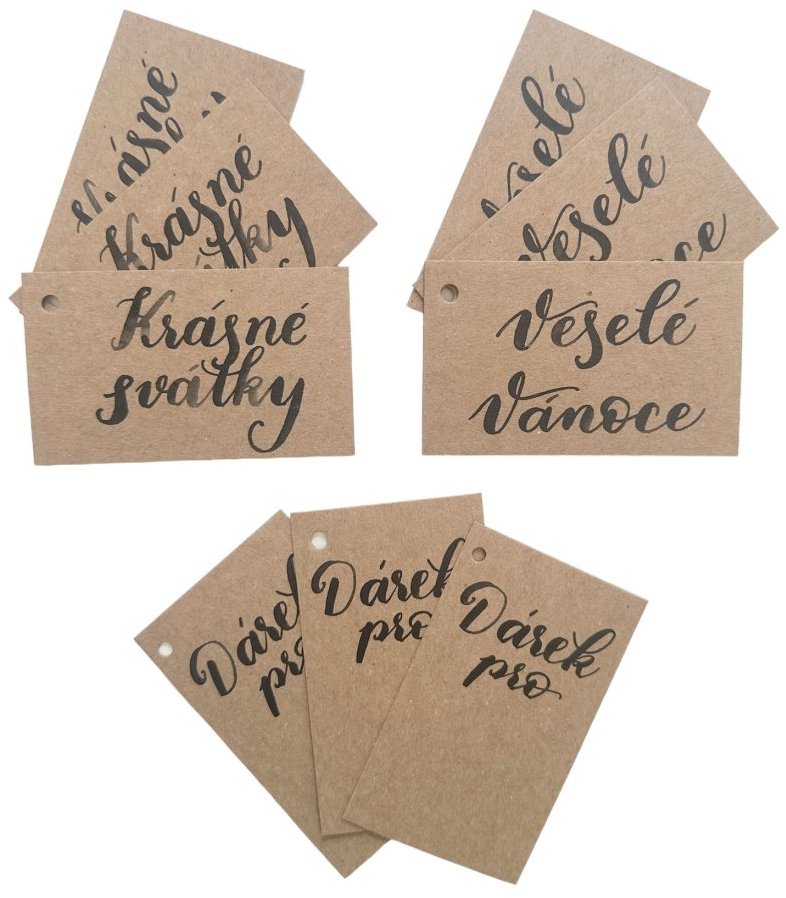 Krásné
Krásné
svátky
Krásné
svátky
Veselé
Veselé
Veselé
Vánoce
Dárek
pro
Dárek
pro
Dárek
pro